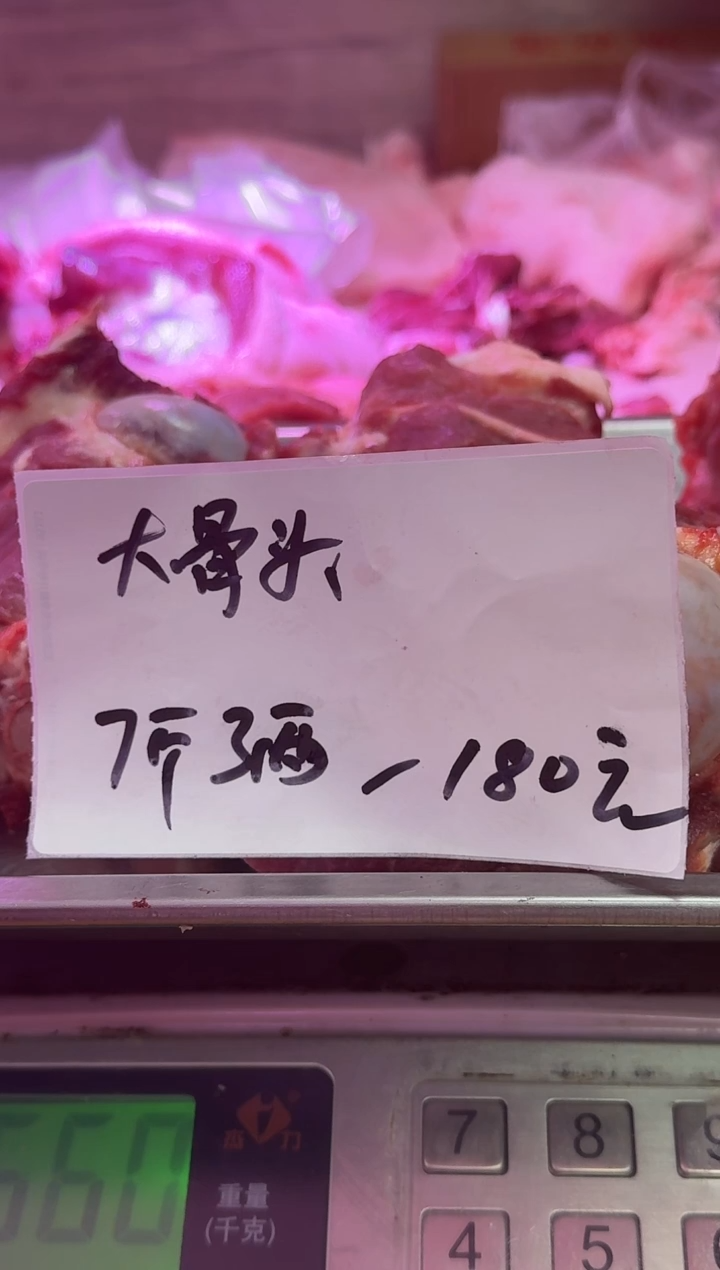 大骨头
7斤3两-180元
660
重量
(千克)
7 8 9
4 5